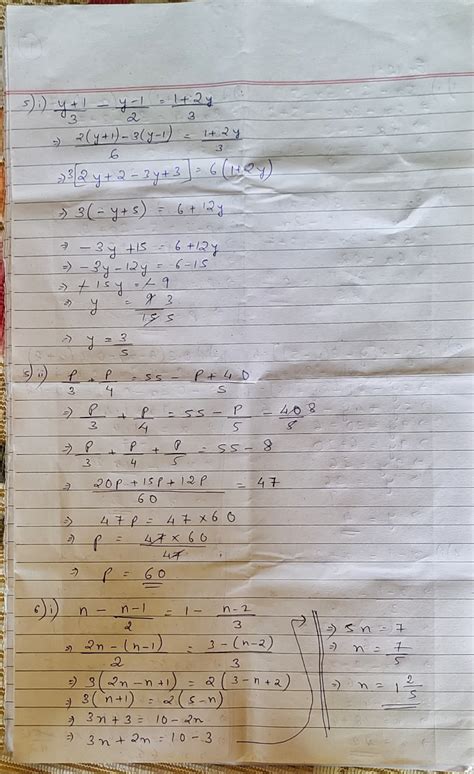 5) i) (y+1)/3 - (y-1)/2 = (1+2y)/3
⇒ (2(y+1)-3(y-1))/6 = (1+2y)/3
⇒ 3[2y+2-3y+3] = 6(1+2y)
⇒ 3(-y+5) = 6+12y
⇒ -3y+15 = 6+12y
⇒ -3y-12y = 6-15
⇒ -15y = -9
⇒ y = 9 3/15 5
⇒ y = 3/5
5 ii) P/3 + P/4 = 55 - (P+40)/5
⇒ P/3 + P/4 = 55 - P/5 - 40 8/5
⇒ P/3 + P/4 + P/5 = 55-8
⇒ (20P+15P+12P)/60 = 47
⇒ 47P = 47×60
⇒ P = (47×60)/47
⇒ P = 60
6) i) n - (n-1)/2 = 1 - (n-2)/3
⇒ (2n-(n-1))/2 = (3-(n-2))/3
⇒ 3(2n-n+1) = 2(3-n+2)
⇒ 3(n+1) = 2(5-n)
⇒ 3n+3 = 10-2n
⇒ 3n+2n = 10-3
⇒ 5n = 7
⇒ n = 7/5
⇒ n = 1 2/5